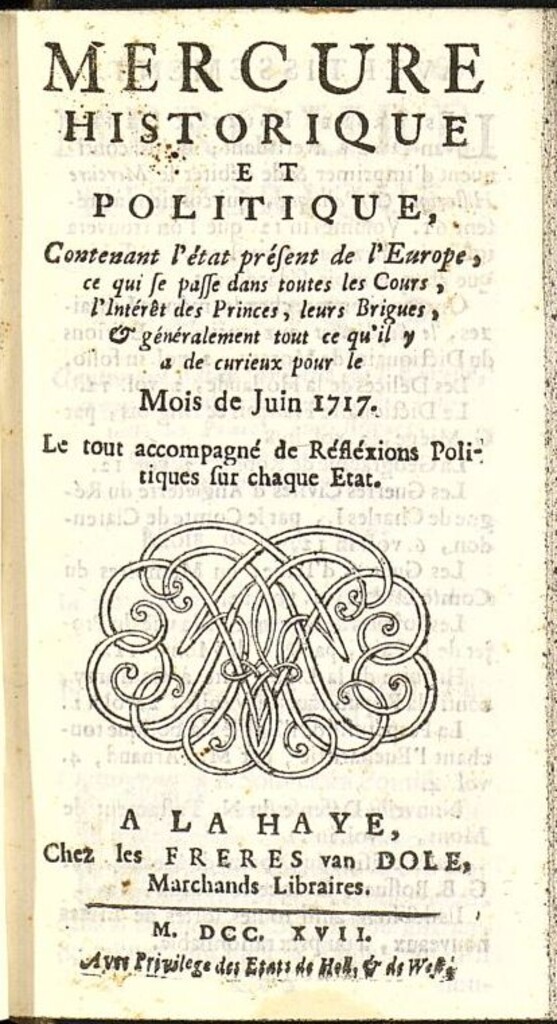 MERCURE
HISTORIQUE
ET
POLITIQUE,
Contenant l'état préſent de l'Europe,
ce qui ſe paſſe dans toutes les Cours,
l'Intérêt des Princes, leurs Brigues,
& généralement tout ce qu'il y
a de curieux pour le
Mois de Juin 1717.
Le tout accompagné de Réfléxions Poli-
tiques ſur chaque Etat.
A LA HAYE,
Chez les FRERES van DOLE,
Marchands Libraires.
M. DCC. XVII.
Avec Privilege des Etats de Holl. & de Weſt.